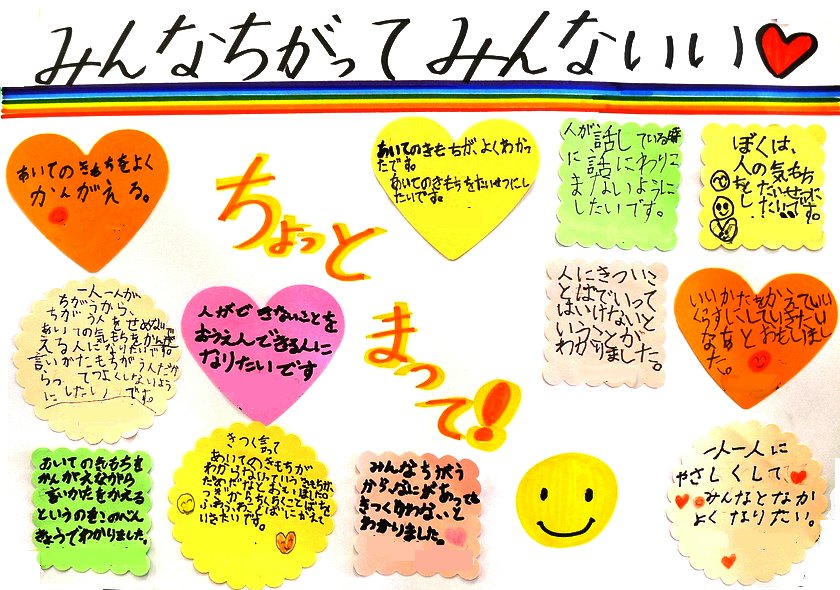 みんなちがってみんないい
あいてのきもちをよく
かんがえる。
ちょっと
まって!
あいてのきもちが、よくわかっ
たです。
あいてのきもちをたいせつにし
たいです。
人が話している時
に話にわりこ
まないように
したいです。
ぼくは、
人の気もち
をたいせつに
したいです。
一人一人が
ちがうから、
人をせめない
あいての気もちをかんが
える人になりたいです。
言いかた
にしたいです。
人ができないことを
おうえんできる人に
なりたいです
人にきついこ
とばでいって
はいけないと
いうことが
わかりました。
いいかたをかえていい
くらすにしていきたい
なあとおもいまし
た。
あいてのきもちを
かんがえながら
言いかたをかえる
というのをこのべん
きょうでわかりました。
きつく言って
あいてのきもちが
わからないでいうきもちが
だめだなとおもいました。
つぎからちくちくことばを
ふわふわことばにかえて
いきたいです。
みんなちがう
からなにがあっても
きつくいわないと
わかりました。
一人一人に
やさしくして、
みんなとなか
よくなりたい。